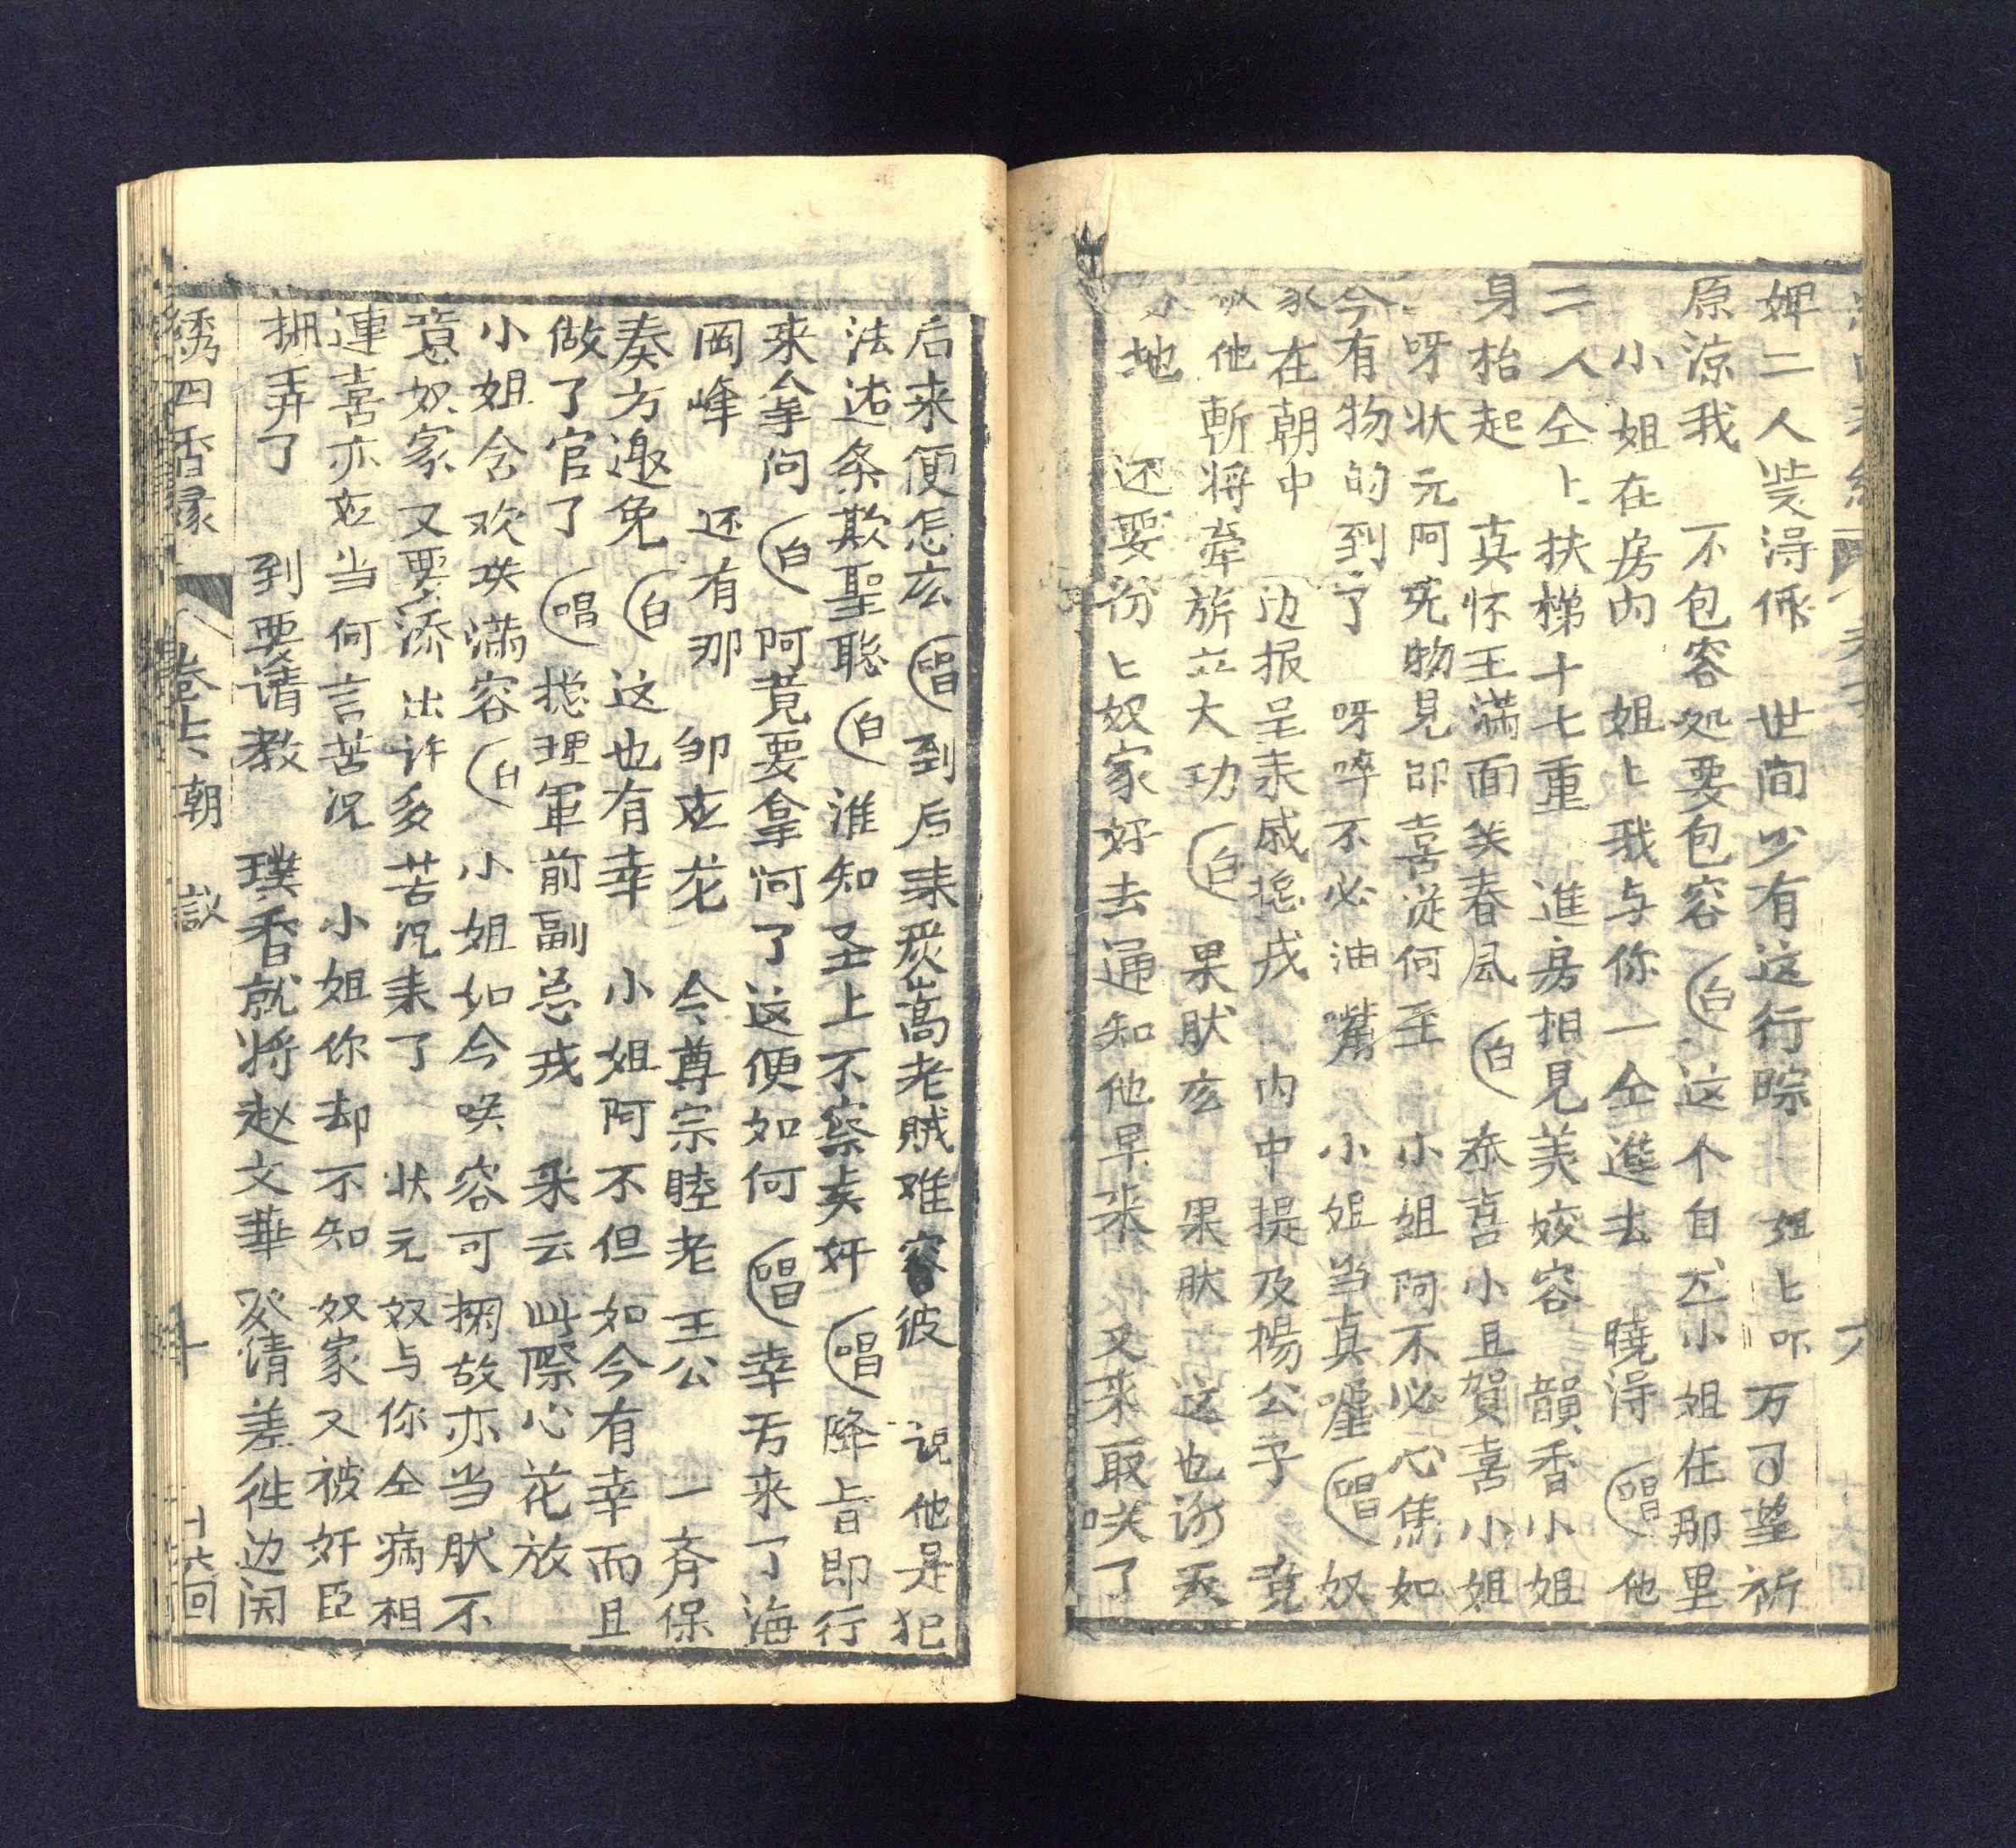 婢二人裝淂俻 世间少有这行踪 姐匕吓万可望祈
原凉我 不包容処要包容 白 这个自 小姐在那里
小姐在房内 姐匕我与你一仝進去 曉淂 唱 他
二人仝上扶梯十七重 進房相見美姣容 韻香小姐
身抬起 真怀王满面笑春风 白 恭喜小且賀喜小姐
呀状元阿 物見卽喜從何至 小姐阿不必心焦如
今有物的到了 呀啐不必油嘴 小姐当真嚜 唱 奴
家在朝中 边报呈来戚捴戎 内中提及楊公子 竟
他斬将搴旂立大功 白 果肰庅 果肰 这也谢天
地 还要份匕奴家好去通知他早来 又来取咲了
后来便怎庅 唱白 到后来严嵩老賊难容彼 说他是犯
法违条欺聖聡 白 谁知圣上不察奸 唱 降旨即行
来拿问 白 阿竟要拿问了这便如何 唱白 幸亏来了海
岡峰 还有那 邹应龙 今尊宗睦老王公 一斉保
奏方邀免 白 这也有幸 小姐阿不但如今有幸而且
做了官了 唱 捴理軍前副总戎 釆云此際心花放
小姐含欢咲满容 白 小姐如今咲容可掬故亦当肰不
意奴家又要添出许多苦况来了 状元奴与你仝病相
連喜亦应当何言苦况 小姐你却不知奴家又被奸臣
捌弄了 到要请教 璞香就将赵文華 癹情差徃边关
綉四香縁 卷六 朝議 十 十六回